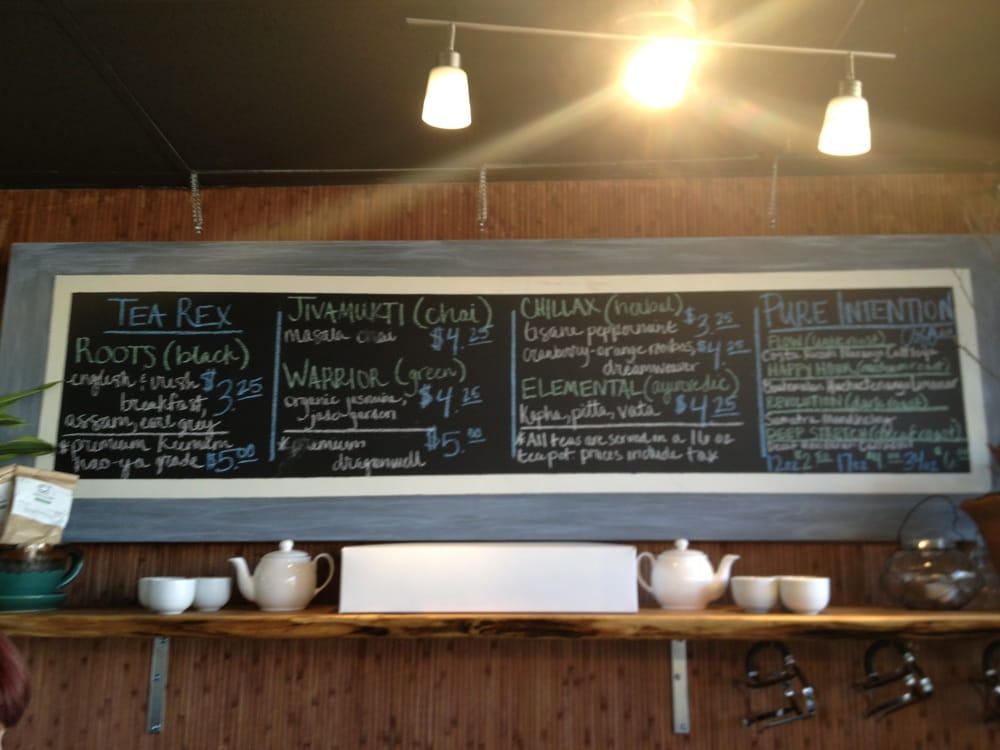 TEA REX
ROOTS (black)
english & irish $3.25
breakfast,
assam, earl grey
*premium Keemun
hao-ya grade $5.00
JIVAMUKTI (chai)
masala chai $4.25
WARRIOR (green)
organic jasmine, $4.25
jade garden
*premium $5.00
dragonwell
CHILLAX (herbal)
tisane peppermint $3.25
cranberry-orange rooibos, $4.25
dreamweaver
ELEMENTAL (ayurvedic)
Kapha, pitta, vata $4.25
*All teas are served in a 16 oz
teapot prices include tax
PURE INTENTION
FLOW
HAPPY HOUR
REVOLUTION (dark roast)
Sumatra Mandheling
DEEP STRETCH
12oz 17oz 34oz